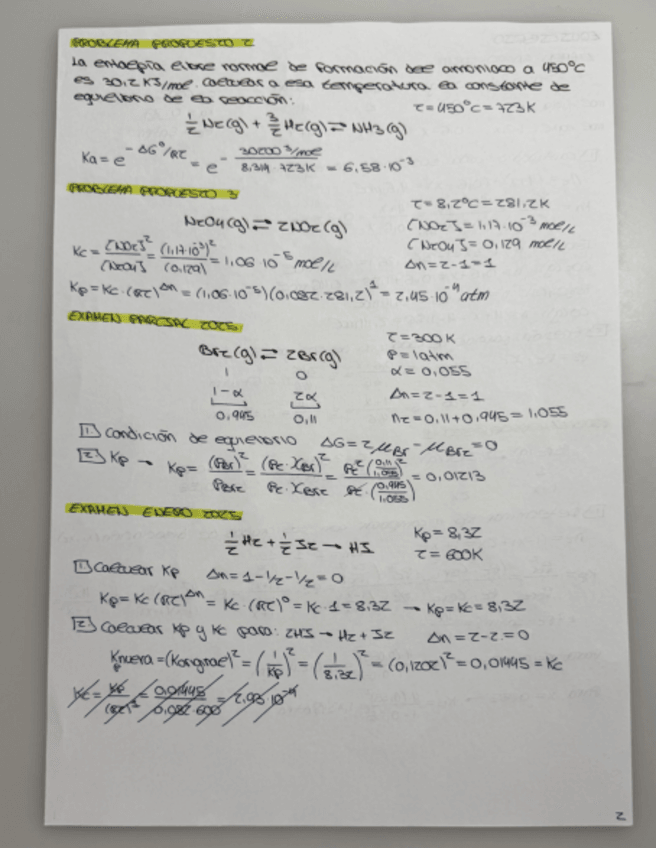 PROBLEMA PROPUESTO 2
La entalpía libre normal de formación del amoniaco a 450°C
es 30,2 KJ/mol. Calcular a esa temperatura la constante de
equilibrio de la reacción:
T=450°C=723K
1/2 N2(g) + 3/2 H2(g) ⇌ NH3(g)
Ka = e^(-ΔG°/RT) = e^(- 30200 J/mol / 8,314·723K) = 6,58·10^-3
PROBLEMA PROPUESTO 3
T=8,2°C=281,2K
N2O4(g) ⇌ 2NO2(g)
[NO2]=1,17·10^-3 mol/L
[N2O4]=0,129 mol/L
Δn=2-1=1
Kc = [NO2]^2/[N2O4] = (1,17·10^-3)^2/(0,129) = 1,06·10^-5 mol/L
Kp=Kc·(RT)^Δn = (1,06·10^-5)(0,082·281,2)^1 = 2,45·10^-4 atm
EXAMEN PARCIAL 2025
T=300K
Br2(g) ⇌ 2Br(g)
P=1atm
1 0
α=0,055
1-α 2α
Δn=2-1=1
0,945 0,11
nT=0,11+0,945=1,055
1 Condición de equilibrio ΔG=2μBr-μBr2=0
2 Kp → Kp = (PBr)^2/PBr2 = (Pt·XBr)^2/(Pt·XBr2) = Pt^2(0,11/1,055)^2/(Pt·(0,945/1,055)) = 0,01213
EXAMEN ENERO 2025
1/2 H2 + 1/2 I2 → HI
Kp=8,32
T=600K
1 Calcular Kp Δn=1-1/2-1/2=0
Kp=Kc(RT)^Δn = Kc·(RT)^0 = Kc·1=8,32 → Kp=Kc=8,32
2 Calcular Kp y Kc para: 2HI → H2+I2 Δn=2-2=0
Knueva=(Koriginal)^2 = (1/Kp)^2 = (1/8,32)^2 = (0,1202)^2 = 0,01445 = Kc
p
Kc = Kp/(RT)^1 = 0,01445/0,082·600 = 2,93·10^-4
2